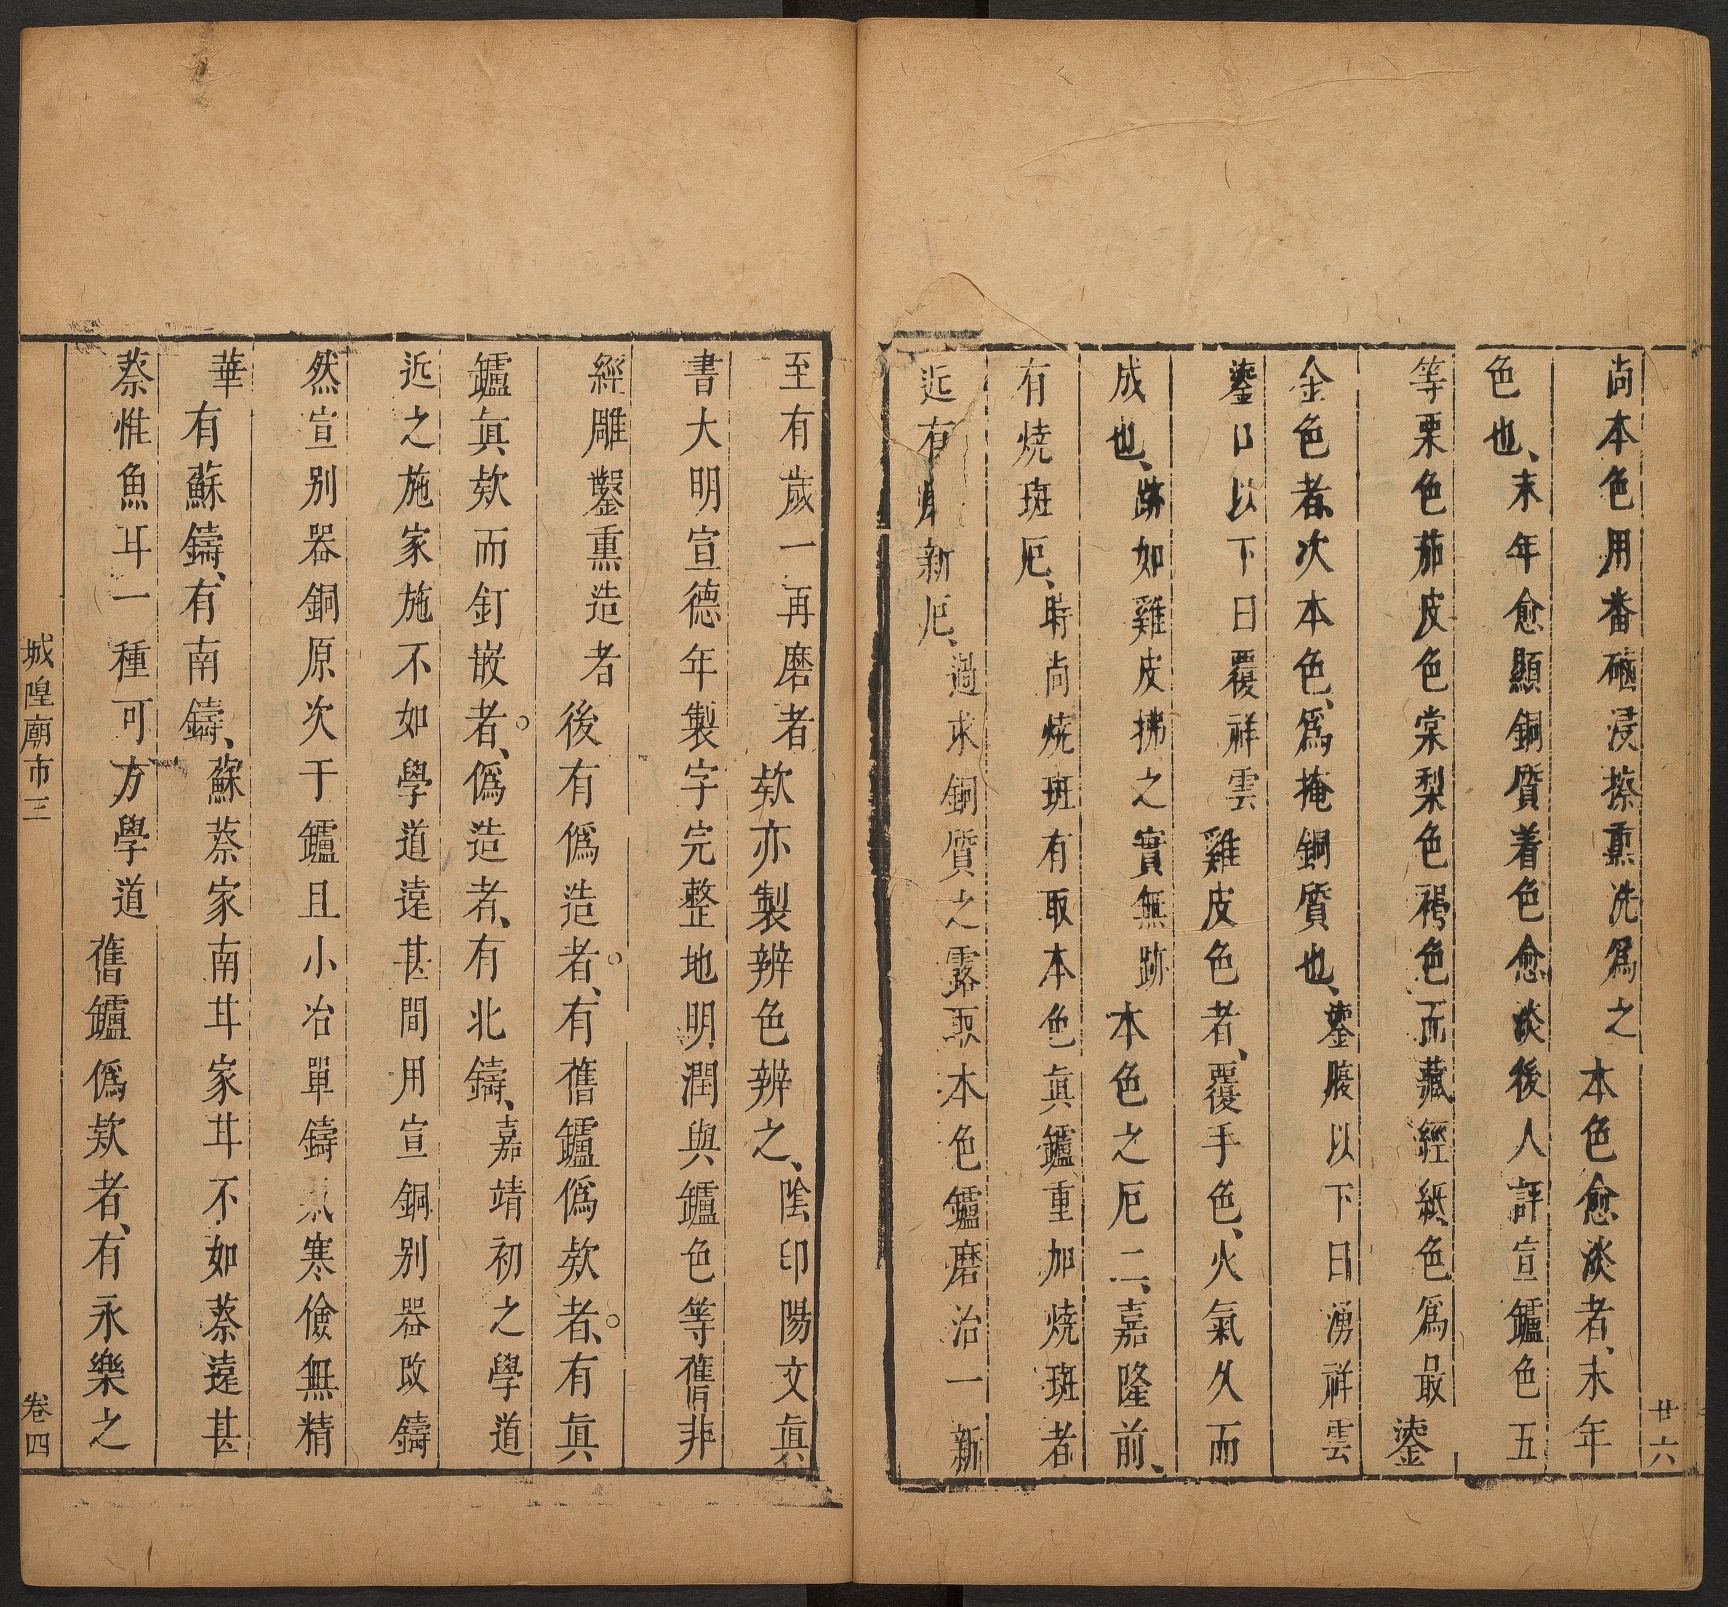 廿六
尚本色用番硇浸擦熏洗爲之本色愈淡者、末年
色也、末年愈顯銅質着色愈淡後人評宣鑪色五
等栗色茄皮色棠梨色褐色而藏經紙色爲最鎏
金色者次本色、爲掩銅質也、鎏腹以下曰湧祥雲
鎏口以下曰覆祥雲雞皮色者、覆手色、火氣久而
成也、跡如雞皮拂之實無跡本色之厄二、嘉隆前、
有燒斑厄、時尚燒斑有取本色眞鑪重加燒斑者
近有新厄、過求銅質之露取本色鑪磨治一新
至有歲一再磨者款亦製辨色辨之、陰印陽文眞
書大明宣德年製字完整地明潤與鑪色等舊非
經雕鑿熏造者後有僞造者、有舊鑪僞款者、有眞
鑪眞款而釘嵌者、僞造者、有北鑄、嘉靖初之學道
近之施家施不如學道遠甚間用宣銅别器改鑄
然宣别器銅原次于鑪且小冶單鑄氣寒儉無精
華有蘇鑄、有南鑄、蘇蔡家南甘家甘不如蔡遠甚
蔡惟魚耳一種可方學道舊鑪僞款者、有永樂之
城隍廟市三
卷四